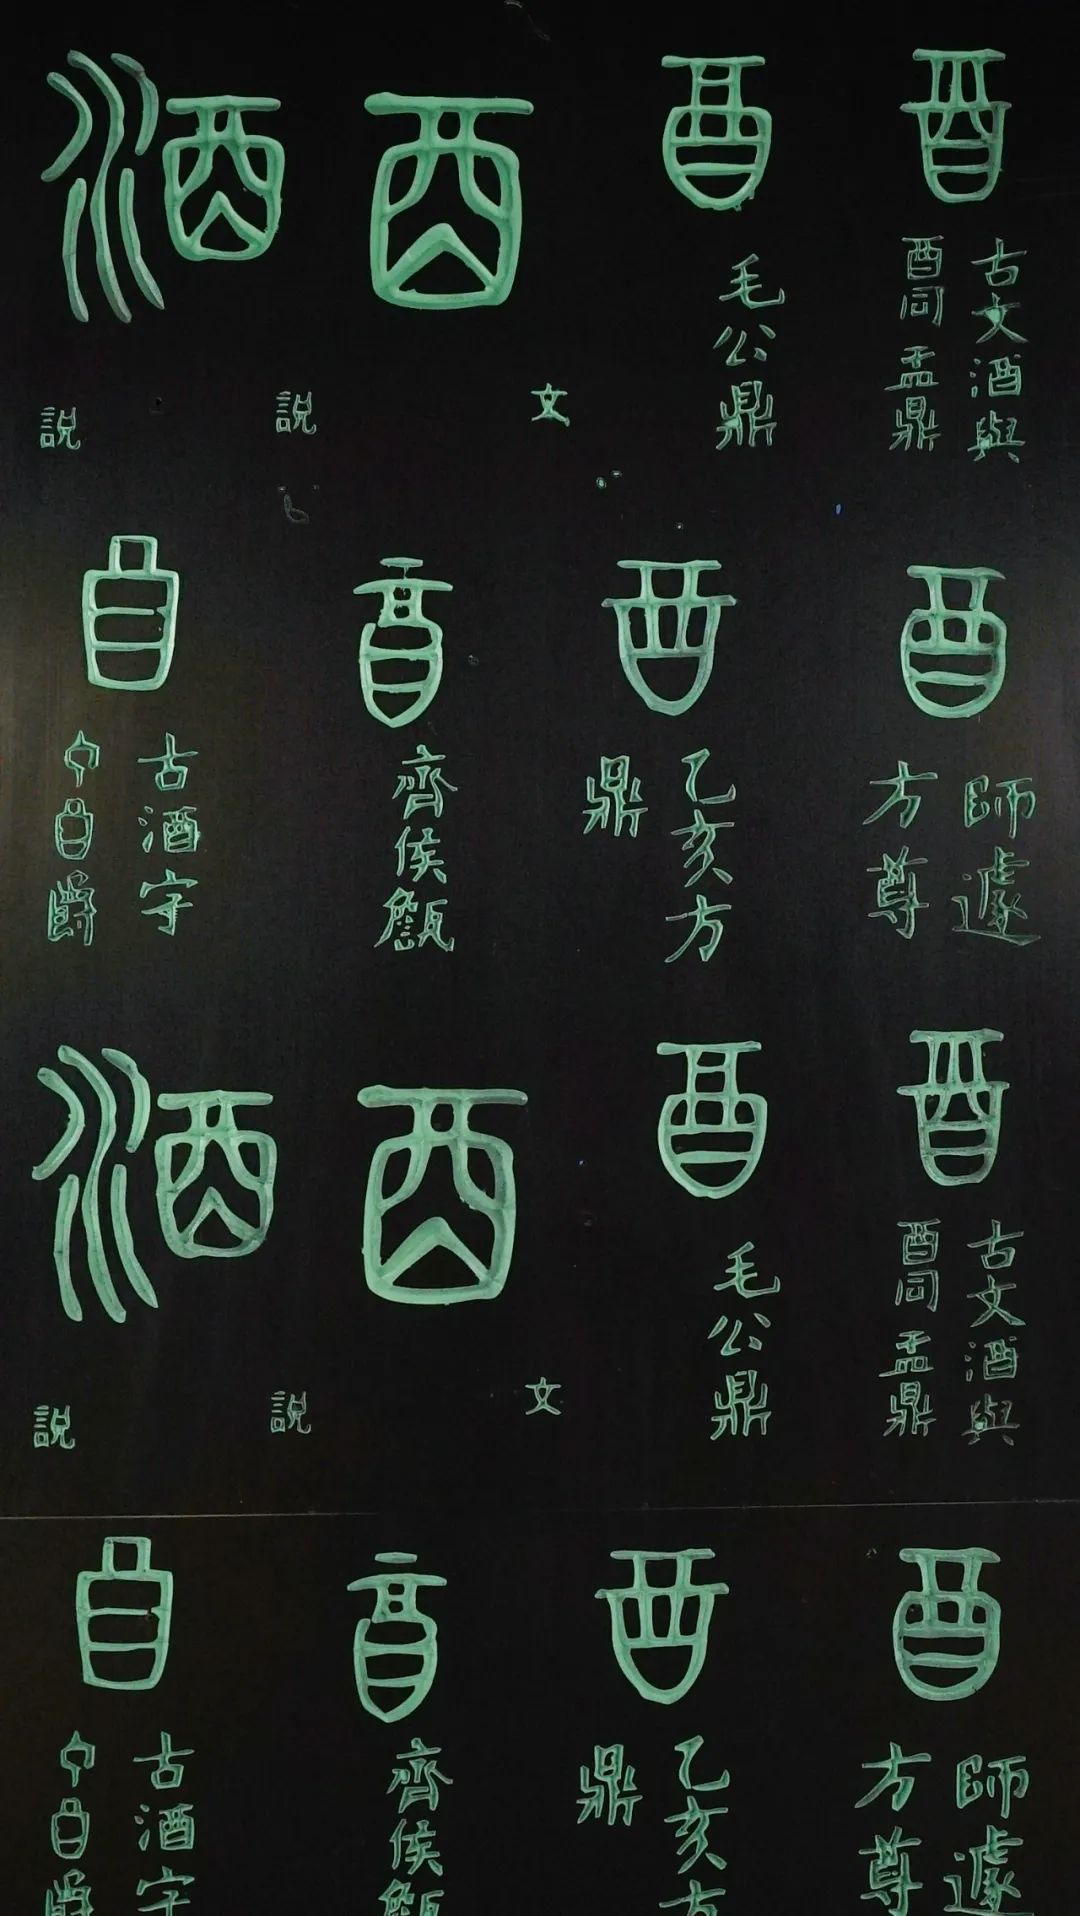 酉
酉
酉
酒
古文酒與
酉同 盂鼎
毛公鼎
文
説
説
酉
酉
酉
酉
師遽
方尊
乙亥方
鼎
齊侯甔
古酒字
酉
酉
酉
酒
古文酒與
酉同 盂鼎
毛公鼎
文
説
説
酉
酉
酉
酉
師遽
方尊
乙亥方
鼎
齊侯甔
古酒字